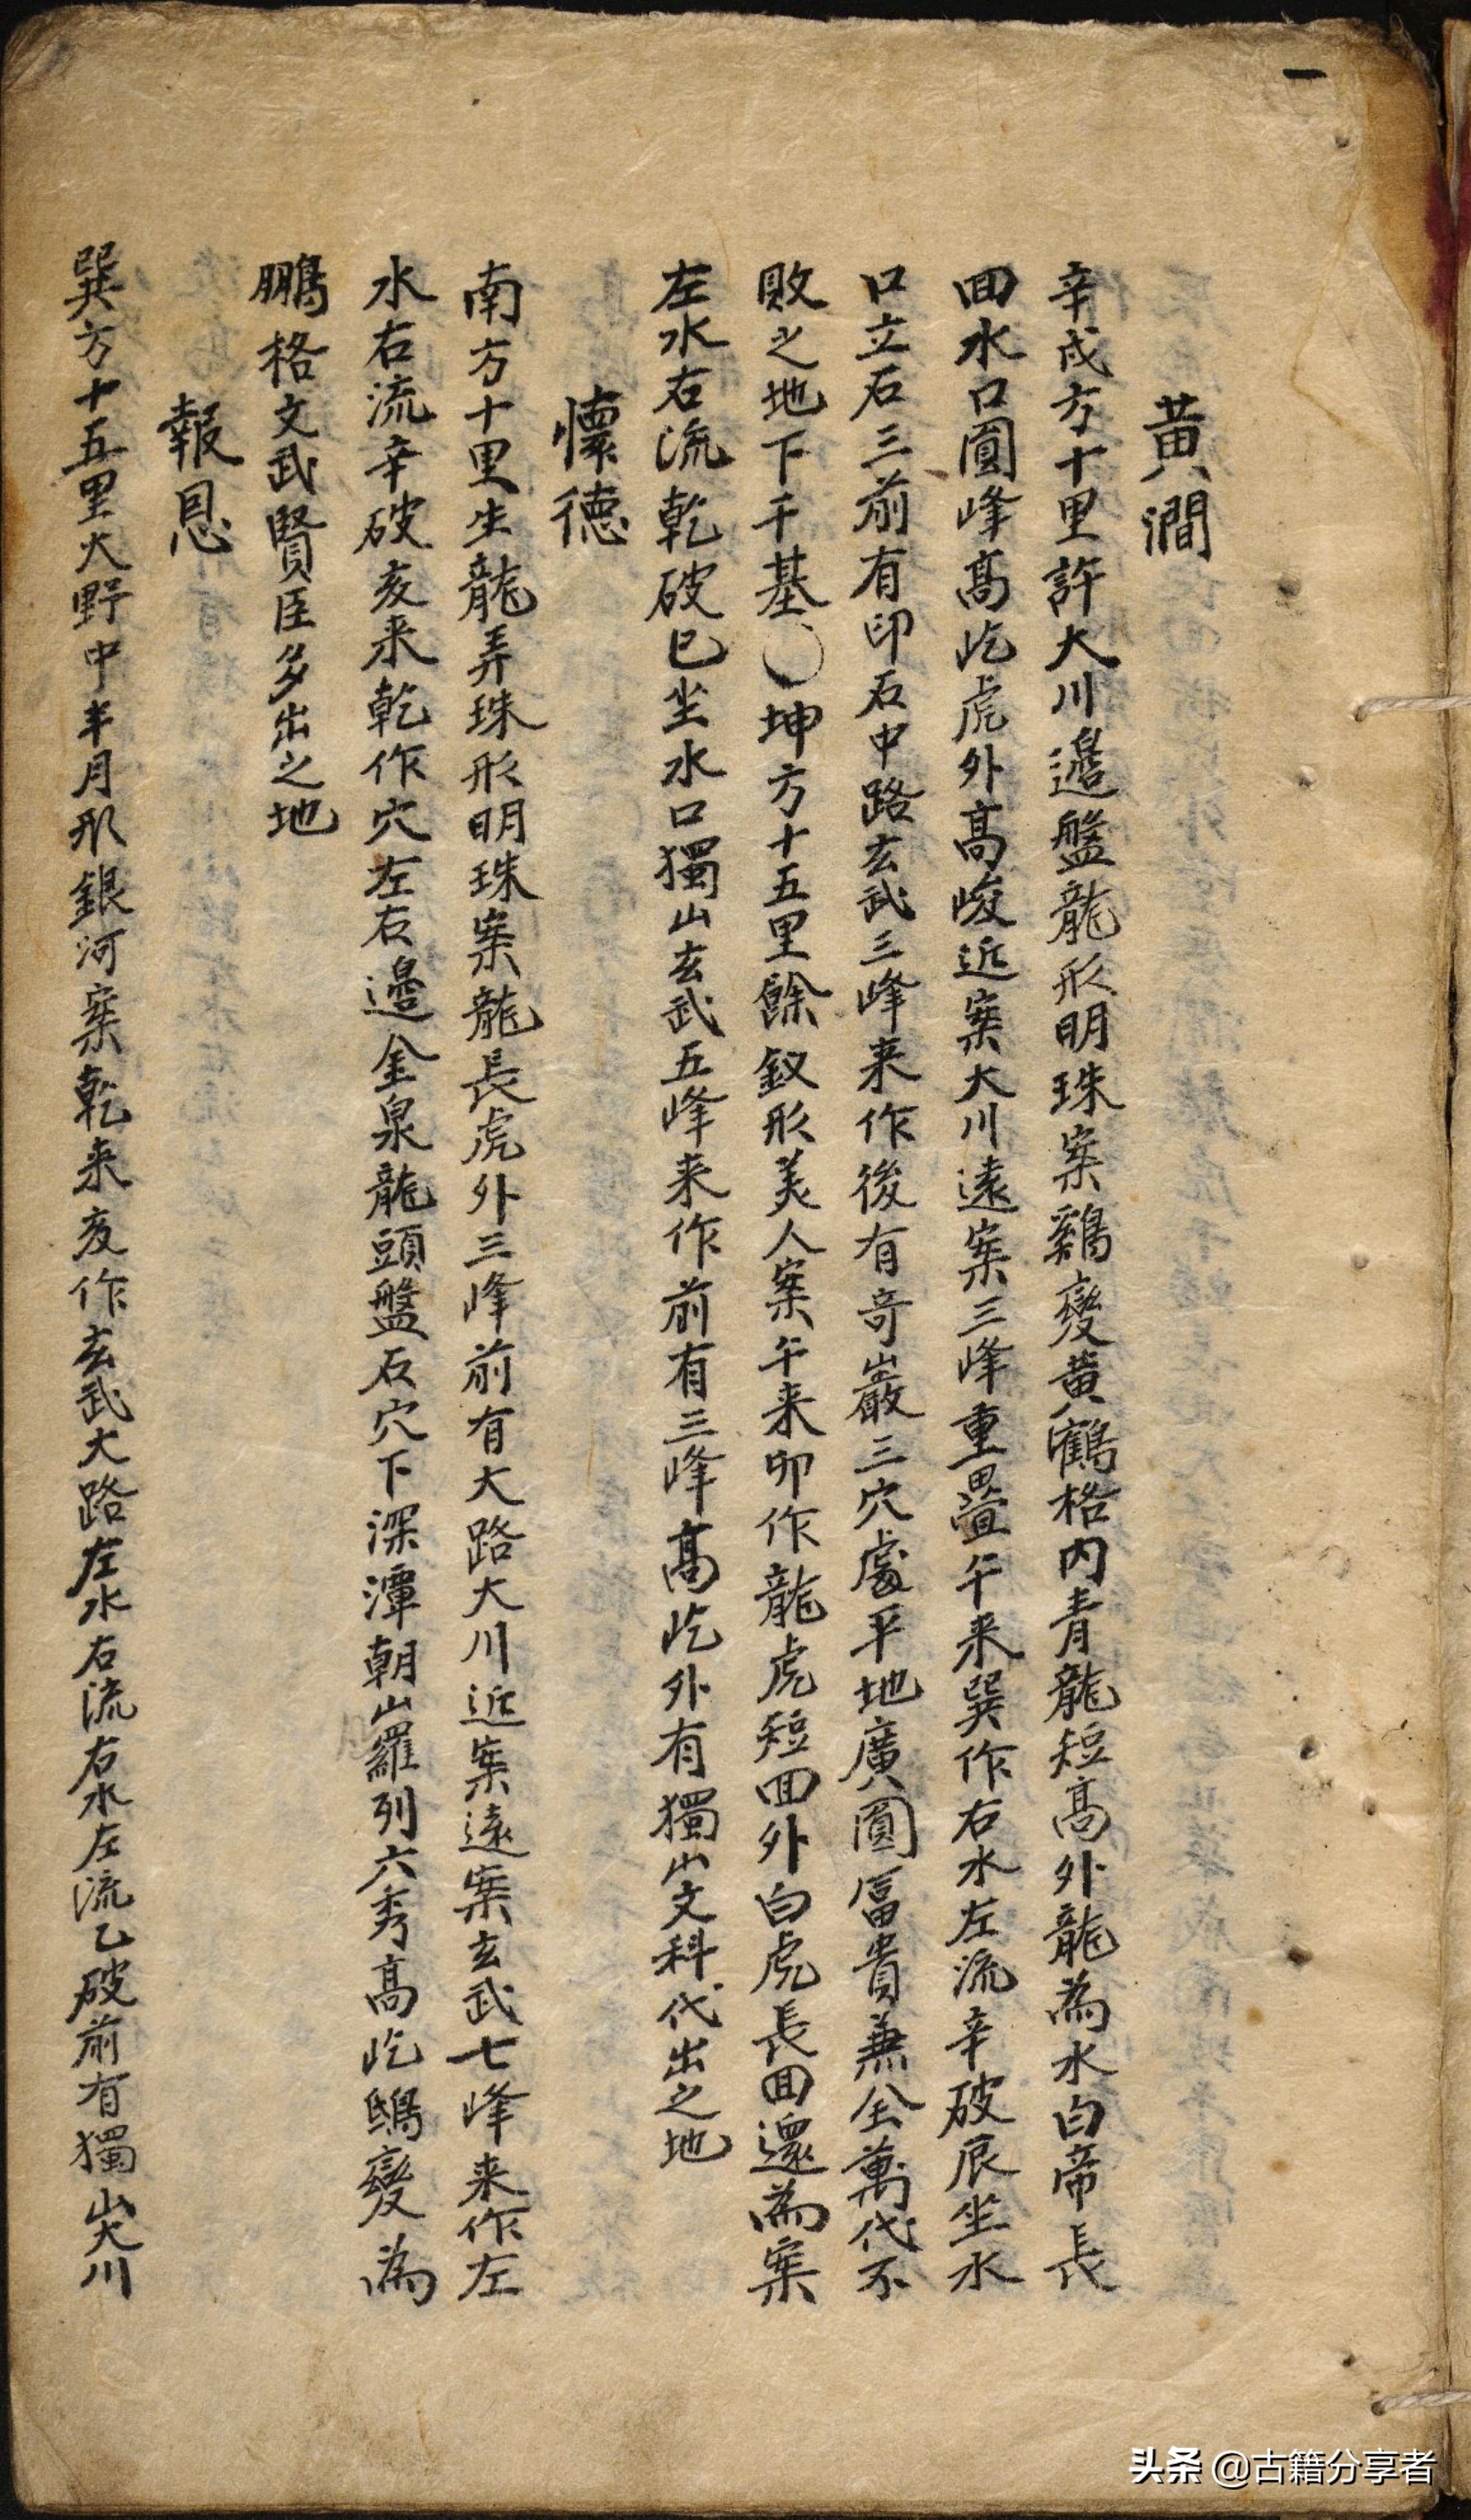 黄澗
辛戌方十里許大川邊盤龍形明珠案鷄變黄鶴格内青龍短高外龍為水白帝長
回水口圓峰高屹虎外高峻近案大川遠案三峰重疊午来巽作右水左流辛破辰坐水
口立石三前有印石中路玄武三峰来作後有奇巖三穴處平地廣圓冨貴兼全萬代不
敗之地下千基〇坤方十五里餘釵形美人案午来卯作龍虎短回外白虎長回還為案
左水右流乾破巳坐水口獨山玄武五峰来作前有三峰高屹外有獨山文科代出之地
懷德
南方十里生龍弄珠形明珠案龍長虎外三峰前有大路大川近案遠案玄武七峰来作左
水右流辛破亥来乾作穴左右邊金泉龍頭盤石穴下深潭朝山羅列六秀高屹鴟變為
鵬格文武賢臣多出之地
報恩
巽方十五里大野中半月形銀河案乾来亥作玄武大路左水右流右水左流乙破前有獨山大川
头条 @古籍分享者